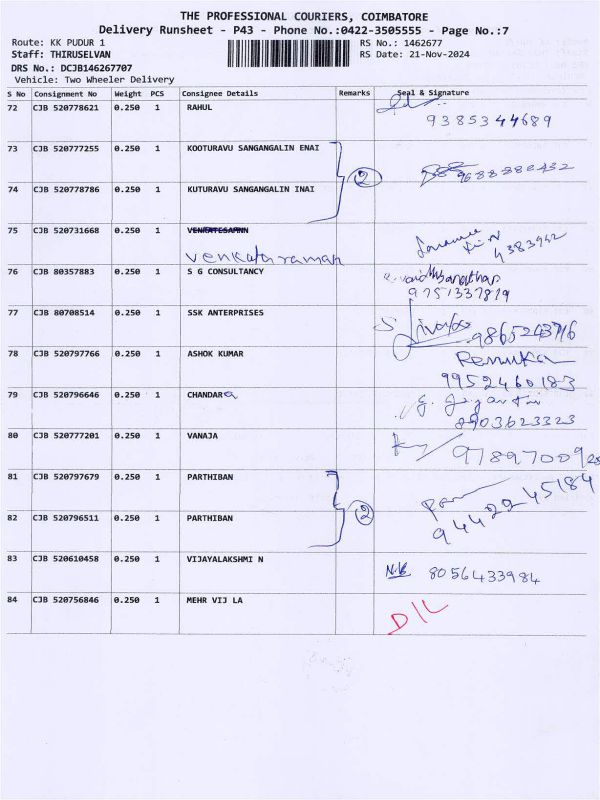 THE PROFESSIONAL COURIERS, COIMBATORE
Delivery Runsheet - P43 - Phone No.:0422-3505555 - Page No.:7
Route: KK PUDUR 1 RS No.: 1462677
Staff: THIRUSELVAN RS Date: 21-Nov-2024
DRS No.: DCJB146267707
Vehicle: Two Wheeler Delivery
S No Consignment No Weight PCS Consignee Details Remarks Seal & Signature
72 CJB 520778621 0.250 1 RAHUL
9385344689
73 CJB 520777255 0.250 1 KOOTURAVU SANGANGALIN ENAI
2 9688880432
74 CJB 520778786 0.250 1 KUTURAVU SANGANGALIN INAI
75 CJB 520731668 0.250 1
venkataraman
76 CJB 80357883 0.250 1 S G CONSULTANCY
9751337819
77 CJB 80708514 0.250 1 SSK ANTERPRISES
9865243716
78 CJB 520797766 0.250 1 ASHOK KUMAR Renuka
9952460183
79 CJB 520796646 0.250 1 CHANDARa
8903623323
80 CJB 520777201 0.250 1 VANAJA
81 CJB 520797679 0.250 1 PARTHIBAN
2 9442245184
82 CJB 520796511 0.250 1 PARTHIBAN
83 CJB 520610458 0.250 1 VIJAYALAKSHMI N
8056433984
84 CJB 520756846 0.250 1 MEHR VIJ LA
D/L